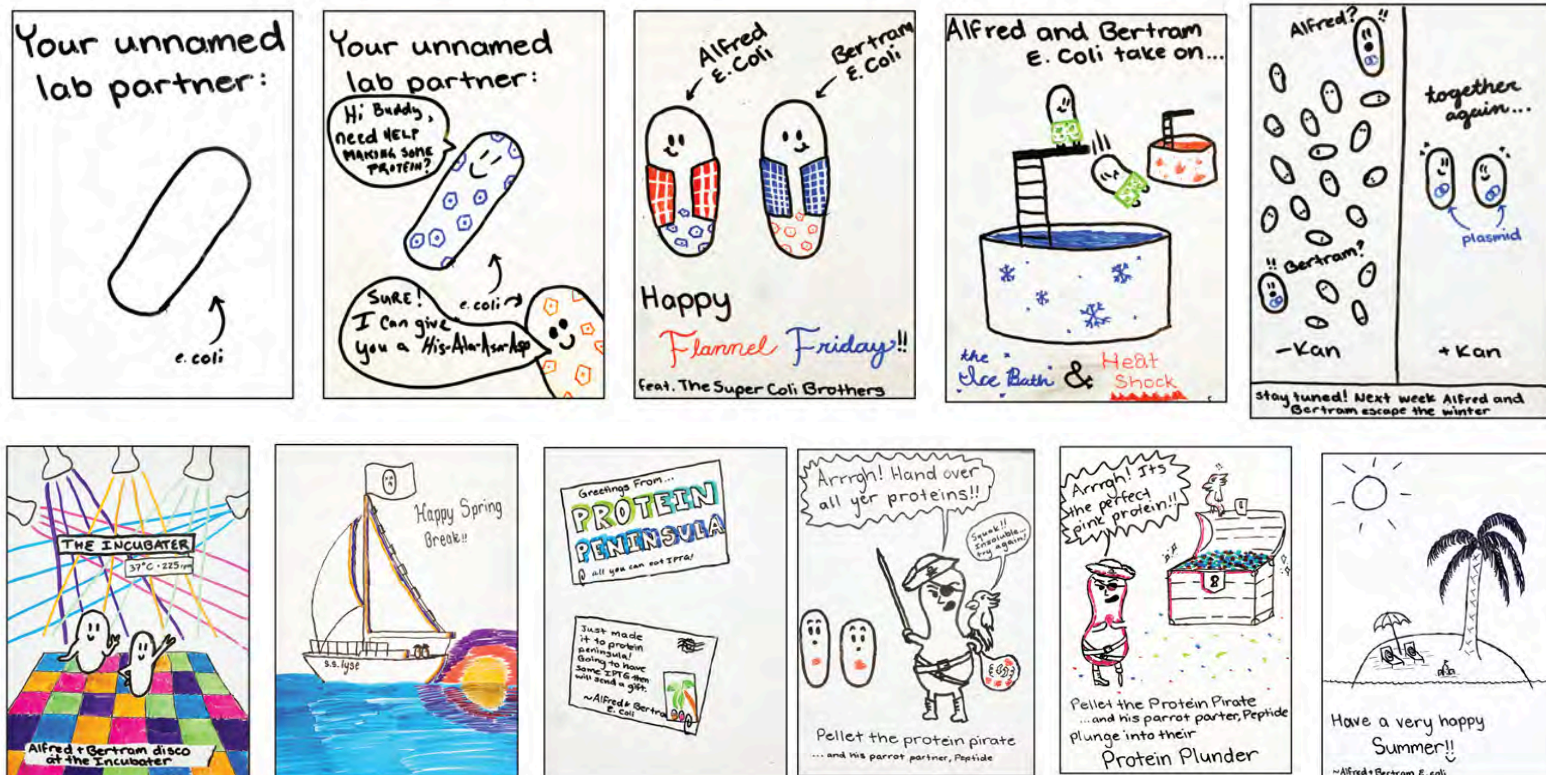 Your unnamed
lab partner:
e. coli
Your unnamed
lab partner:
Hi Buddy,
need HELP
MAKING SOME
PROTEIN?
e. coli
SURE!
I can give
you a His-Ala-Asn-Asp
Alfred
E. Coli
Bertram
E. Coli
Happy
Flannel Friday!!
feat. The Super Coli Brothers
Alfred and Bertram
E. Coli take on...
the
Ice Bath & Heat
Shock
Alfred? !!
!!
Bertram?
-Kan
together
again...
plasmid
+Kan
stay tuned! Next week Alfred and
Bertram escape the winter
THE INCUBATER
37°C · 225rpm
Alfred + Bertram disco
at the Incubater
Happy Spring
Break!!
s.s. lyse
Greetings From...
PROTEIN
PENINSULA
all you can eat IPTG!
Just made
it to protein
peninsula!
Going to have
some IPTG then
will send a gift.
~Alfred + Bertram
E. coli
Arrrgh! Hand over
all yer proteins!!
Squak!!
Insoluble...
try again!
Pellet the protein pirate
... and his parrot partner, Peptide
Arrrgh! Its
the perfect
pink protein!!
Pellet the Protein Pirate
...and his parrot parter, Peptide
plunge into their
Protein Plunder
Have a very happy
Summer!!
~Alfred + Bertram E. coli